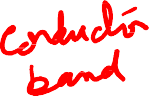 conduction
band